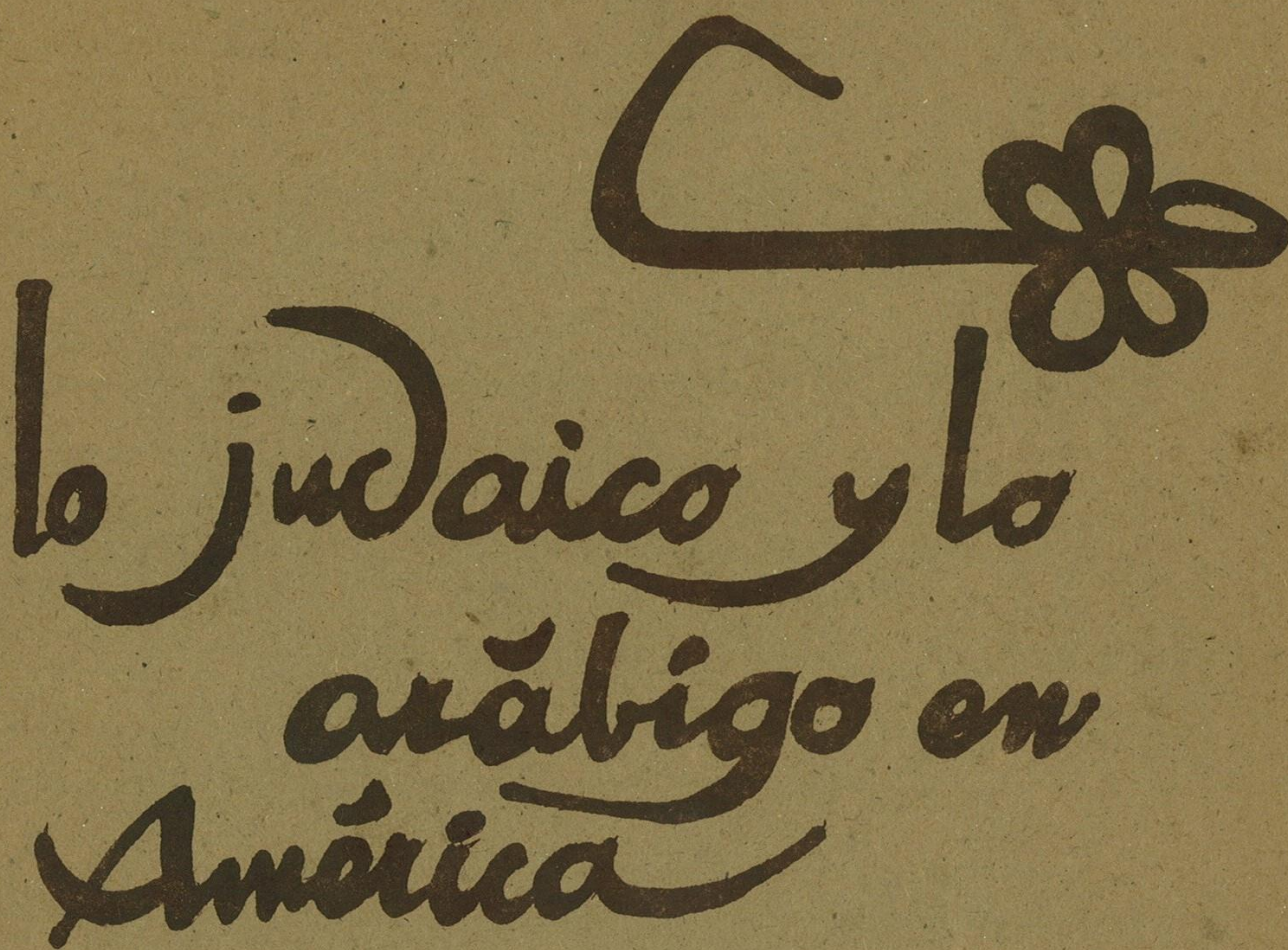 lo judaico y lo
arăbigo en
América